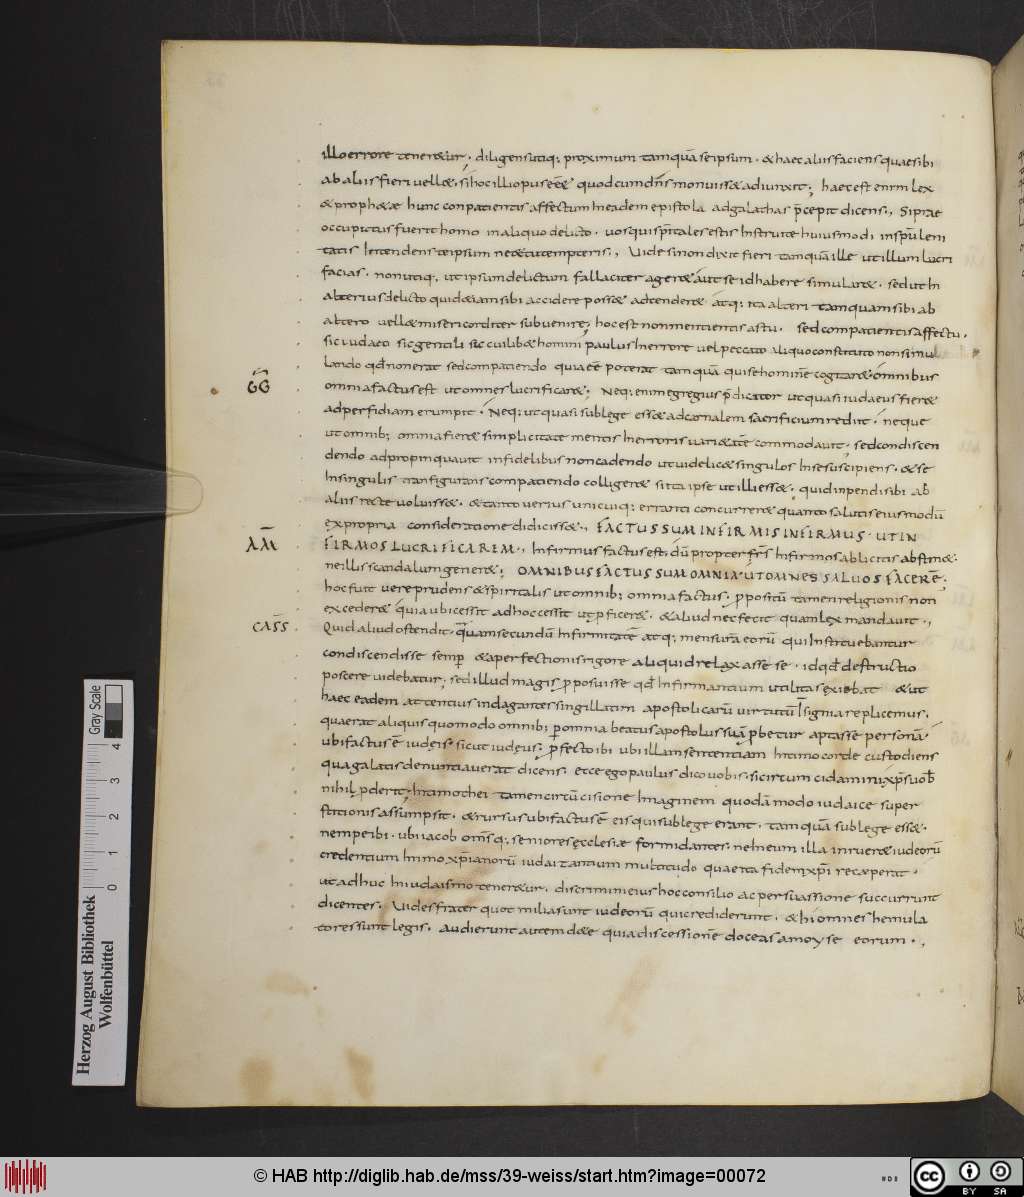 illo errore teneretur · diligens utiq; proximum tamquā seipsum · & haec aliis faciens quae sibi
ab aliis fieri vell&, si hoc illi opus eēt quod cum dn̄s monuiss& adiunxit; haec est enim lex
& proph&ae hunc conpatientis affectum In eadem epistola ad galathas p̄cepit dicens., Si prae
occupatus fuerit homo in aliquo delicto · vos qui sp̄itales estis Instruite huiusmodi in sp̄u leni
tatis Intendens teipsum ne & tu tempteris., Vide si non dixit fieri tamquā ille ut illum lucri
facias · non utiq; ut ipsum delictum fallaciter ager& aut se id habere simular& · sed ut In
alterius delicto quid &iam sibi accidere poss& adtender& atq; ita alteri tamquam sibi ab
altero vell& misericorditer subvenire; hoc est non mentientis astu · sed compatientis affectu ·
sic iudaeo sic gentili sic cuilib& homini paulus In errore vel peccato aliquo constituto non simul
lando qd̄ non erat sed compatiendo quia eē poterat tamquā qui se hominē cogitar& omnibus
GḠ
omnia factus est ut omnes lucrificar&; Neq; enim egregius p̄dicator ut quasi iudaeus fier&
ad perfidiam erumpit · Neq; ut quasi sub lege ess& ad carnalem sacrificium rediit · neque
ut omnib; omnia fier& simplicitate mentis In erroris variaetatē commodavit, sed condiscen
dendo adpropinquavit infidelibus non cadendo ut videlic& singulos In se suscipiens · & se
In singulis transfigurans compatiendo colliger& si ita ipse ut illi ess& · quid inpendi sibi ab
aliis recte voluiss& · & tanto verius unicuiq; erranti concurrer& quanto salutis eius modū
ex propria consideratione didiciss&., FACTUS SUM INFIRMIS INFIRMUS · UT IN
AM̄
FIRMOS LUCRIFICAREM., Infirmus factus est; dū propter fr̄s Infirmos ab licitis abstin& ·
ne illis scandalum gener&; OMNIBUS FACTUS SUM OMNIA · UT OMNES SALVOS FACERĒ;
hoc fuit vere prudens & sp̄iritalis ut omnib; omnia factus · p̄positū tamen religionis non
exceder& quia ubi cessit ad hoc cessit ut p̄ficer& · & aliud nec fecit quam lex mandavit.,
CASS̄
Quid aliud ostendit · quam secundū Infirmitatē atq; mensurā eorū qui Instruebantur
condiscendisse semp̄ & a perfectionis rigore aliquid relaxasse se · id qd̄ destructio
poscere videbatur; sed illud magis p̄posuisse qd̄ Infirmantium utilitas exibebat & ut
haec eadem attentius indagantes singillatim apostolicarū virtutū Insignia replicemus ·
quaerat aliquis quomodo omnib; per omnia beatus apostolus suā p̄betur aptasse personā ·
ubi factus ē iudęis · sicut iudęus; p̄fecto ibi ubi illam sententiam Intimo corde custodiens
qua galatis denuntiaverat dicens · ecce ego paulus dico vobis · si circumcidamini xp̄s vob̄
nihil p̄derit; In timothei tamen circūcisione Imaginem quodā modo iudaice super
stitionis assumpsit · & rursus ubi factus ē eis qui sub lege erant · tamquā sub lege ess& ·
nempe ibi · ubi iacob omīsq; seniores ęcclesiæ formidantes · ne In eum illa inruer& iudeorū
credentium Immo xp̄ianorū iudaizantium multitudo quae ita fidem xp̄i recæperat ·
ut adhuc In iudaismo teneretur · discrimini eius hoc consilio ac persuassione succurrunt
dicentes · Vides frater quot milia sunt iudeorū qui crediderunt · & hi omnes hemula
tores sunt legis · Audierunt autem de te quia discessionē doceas a moyse eorum ·,
Gray Scale
4
3
2
1
0
Herzog August Bibliothek
Wolfenbüttel
© HAB http://diglib.hab.de/mss/39-weiss/start.htm?image=00072
cc BY SA